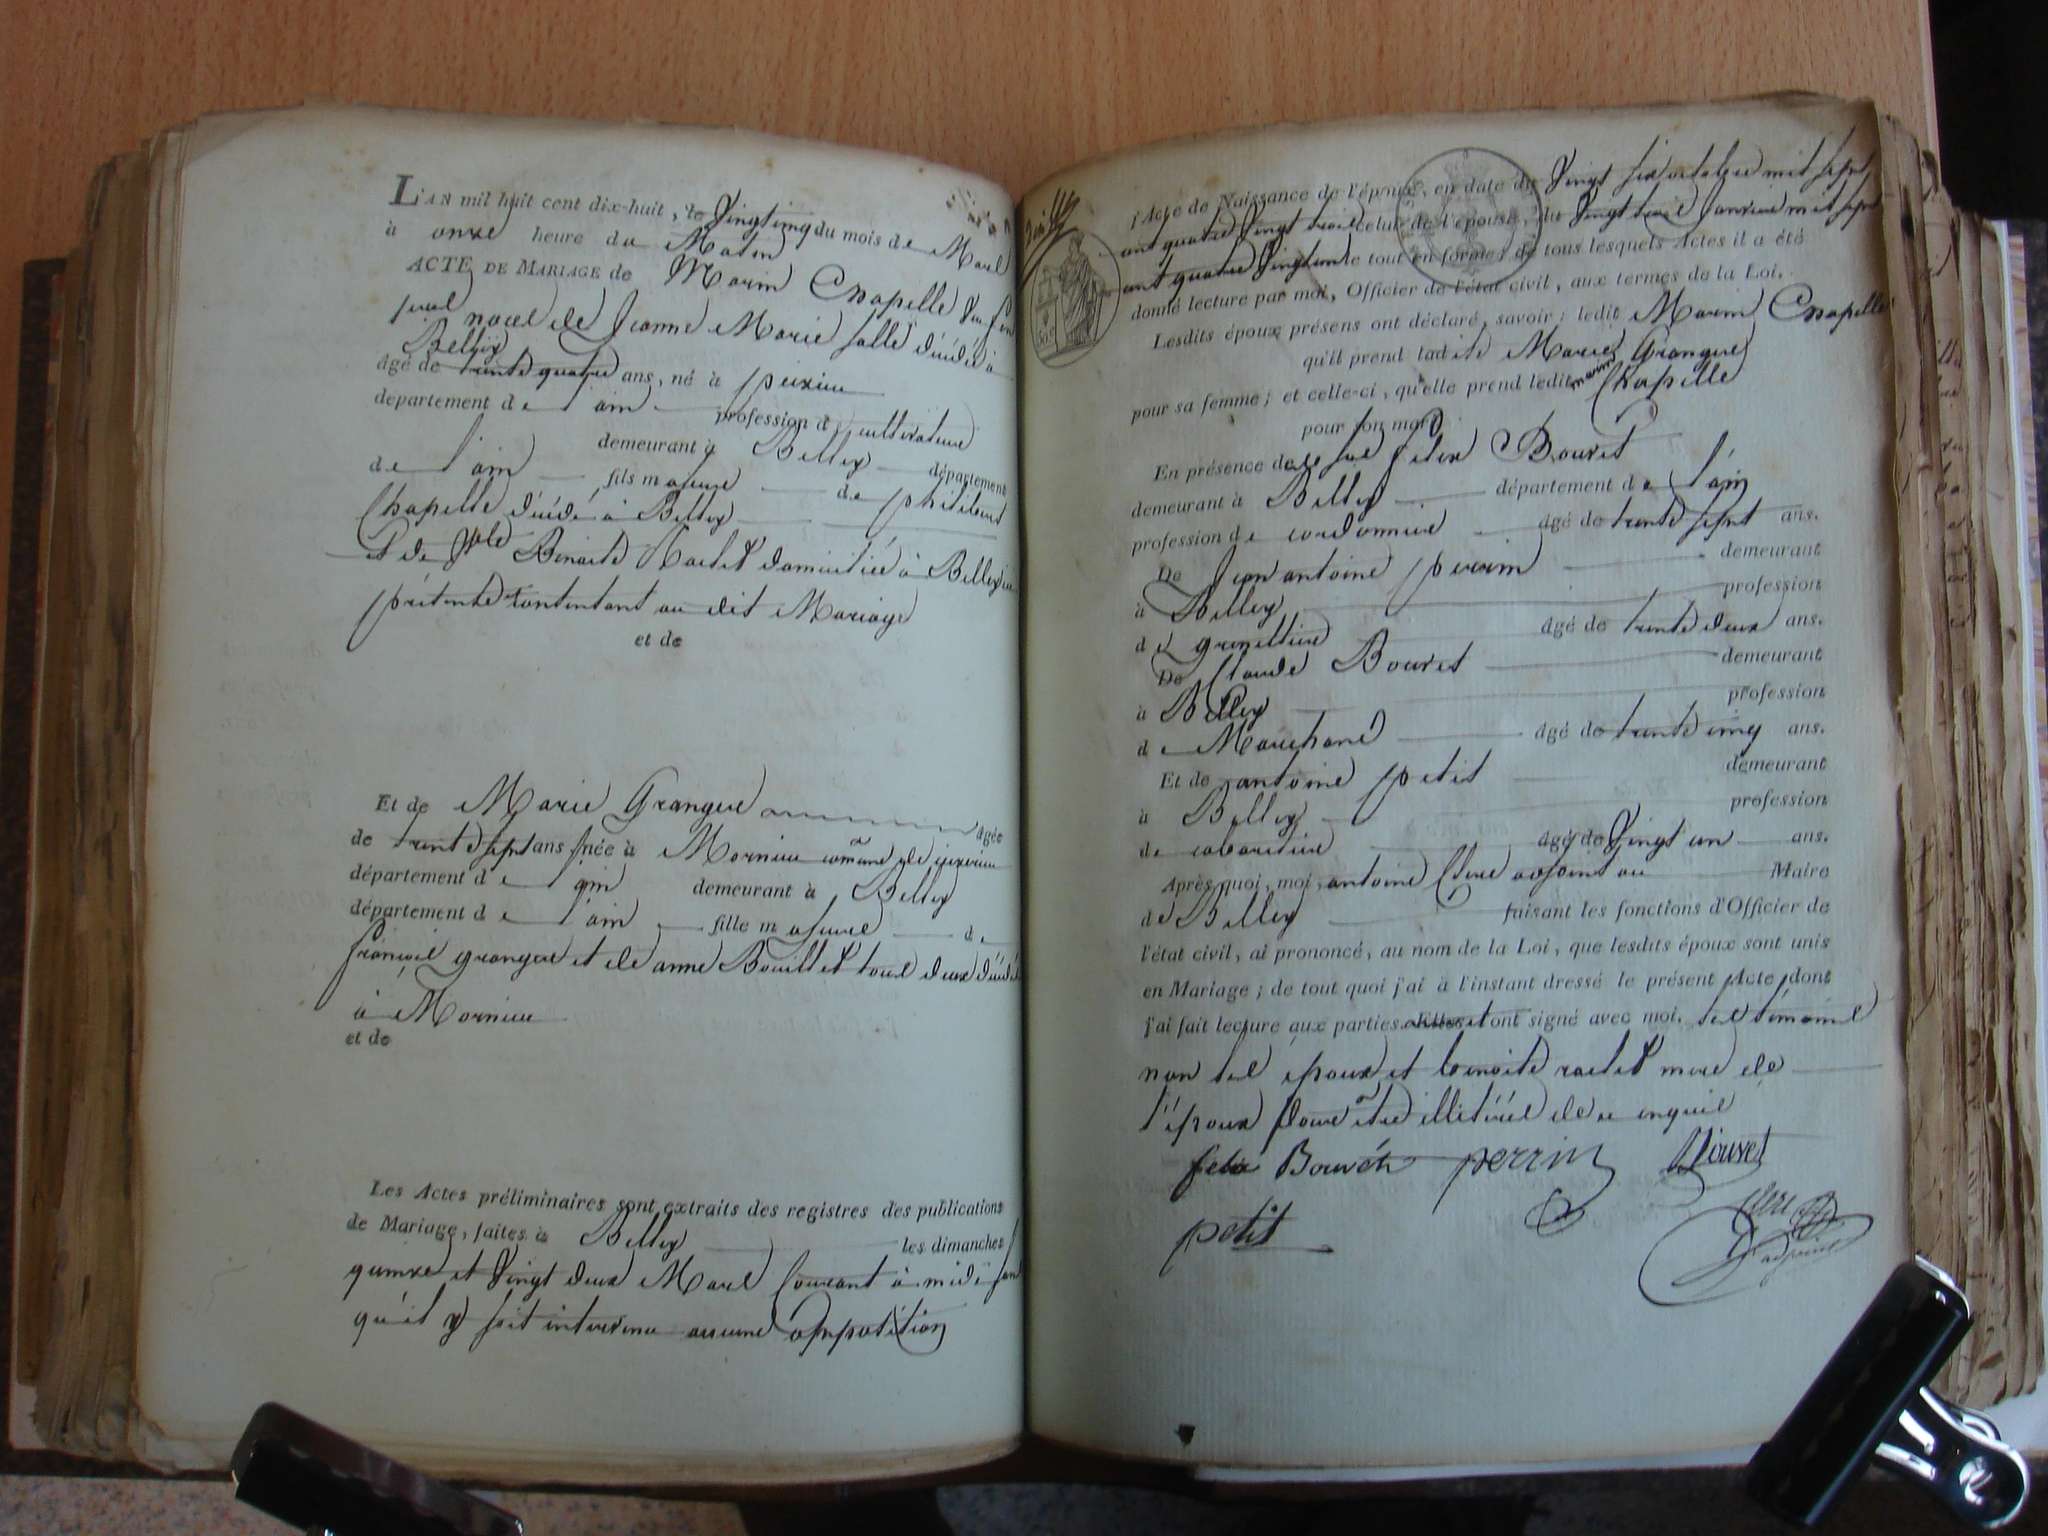 L'AN mil huit cent dix-huit, le Vingt cinq du mois de Mars
à onze heure du Matin
ACTE DE MARIAGE de Marin Chapelle
Jeanne Marie décédée à
Belley
âgé de trente quatre ans, né à peizieu
département de l'ain profession de cultivateur
demeurant à Belley département
de l'ain fils majeur de philibert
Chapelle décédé à Belley
Et de Benoite domiciliée à Belley
présente contentant au dit Mariage
et de
Et de Marie Grangere âgée
de trente sept ans née à Mornieu comune de
département de l'ain demeurant à Belley
département de l'ain fille majeure de
françois grangere et de anne Bouillet tous deux décédés
à Mornieu
et de
Les Actes préliminaires sont extraits des registres des publications
de Mariage, faites à Belley les dimanches
quinze et Vingt deux Mars Courant à midi sans
qu'il y soit intervenu aucune opposition
l'Acte de Naissance de l'époux, en date du Vingt six octobre mil sept
cent quatre Vingt trois celui de l'épouse, du Vingt trois Janvier mil sept
cent quatre Vingt un le tout en formes de tous lesquels Actes il a été
donné lecture par moi, Officier de l'état civil, aux termes de la Loi.
Lesdits époux présens ont déclaré, savoir : ledit Marin Chapelle
qu'il prend ladite Marie Grangere
pour sa femme ; et celle-ci, qu'elle prend ledit marin Chapelle
pour son mari
En présence de felix Bouvet
demeurant à Belley département de l'ain
profession de cordonnier âgé de trente sept ans.
De Jean antoine perrin demeurant
à Belley profession
de grenettier âgé de trente deux ans.
De Claude Bouvet demeurant
à Belley profession
de Marchand âgé de trente cinq ans.
Et de antoine petit demeurant
à Belley profession
de cabaretier âgé de Vingt un ans.
Après quoi, moi, antoine Clerc adjoint au Maire
de Belley faisant les fonctions d'Officier de
l'état civil, ai prononcé, au nom de la Loi, que lesdits époux sont unis
en Mariage ; de tout quoi j'ai à l'instant dressé le présent Acte dont
j'ai fait lecture aux parties. Elles ont signé avec moi. les témoins
non les époux et benoite mere de
l'époux pour être illitérés de ce enquis
felix Bouvet perrin Bouvet
petit Clerc
adjoint